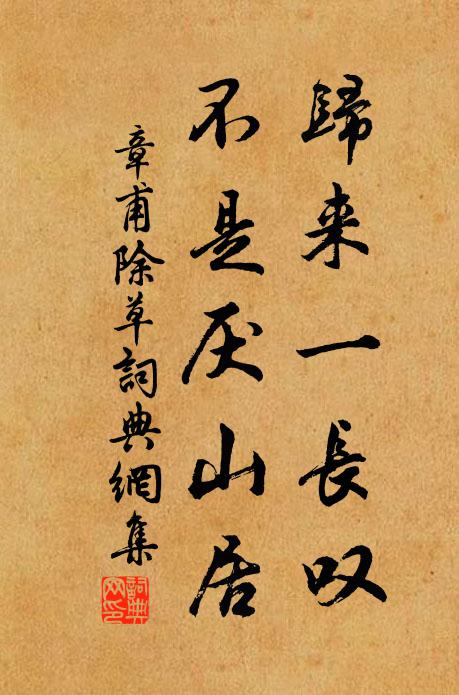 歸来一長叹
不是厌山居
章甫除草詞典網集
詞典網印